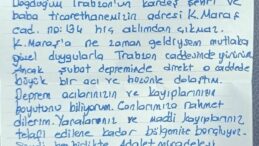 Doğduğum Trabzon'un kardeş şehri ve
baba ticarethanemizin adresi K.Maraş
cad. no:134 hiç aklımdan çıkmaz.
K.Maraş'a ne zaman geldiysem mutlaka
güzel duygularla Trabzon caddesinde yürürüm.
Ancak şubat depreminde direkt o caddede
büyük bir acı ve hüzünle dolaştım.
Deprem acılarınızın ve kayıplarınızın
boyutunu biliyorum. Canlarımıza rahmet
dilerim. Yaralarınız ve maddi kayıplarınız
telafi edilene kadar bölgenize borçluyuz.
birlikte Adalet mücadelesi